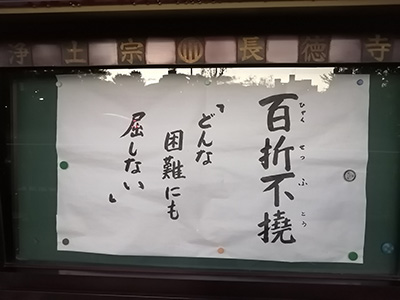 浄土宗 長徳寺
百折不撓
ひゃく せつ ふ とう
「どんな
困難にも
屈しない」